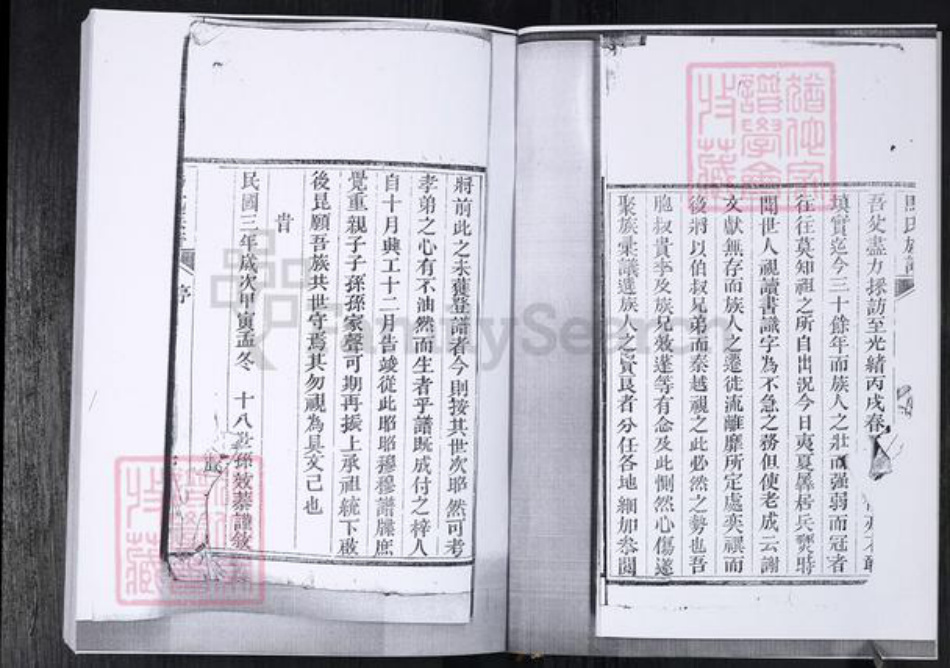 吾父盡力採訪至光緒丙戌春
填實迄今三十餘年而族人之壯而强弱而冠者
往往莫知祖之所自出況今日夷夏屬居兵燹時
聞世人視讀書識字為不急之務但使老成云謝
文獻無存而族人之遷徙流離靡所定處奕禩而
後將以伯叔兄弟而秦越視之此必然之勢也吾
胞叔貴季及族兄效蓬等有念及此惻然心傷遂
聚族彙議選族人之賢良者分任各地細加叅閱
將前此之未獲登譜者今則按其世次昭然可考
孝弟之心有不油然而生者乎譜既成付之梓人
自十月興工十二月告竣從此昭昭穆穆譜牒庶
覺重親子子孫孫家聲可期再振上承祖統下啟
後昆願吾族共世守焉其勿視為具文已也
旹
民國三年歲次甲寅孟冬 十八世孫效蓁謹敘
序
FamilySearch